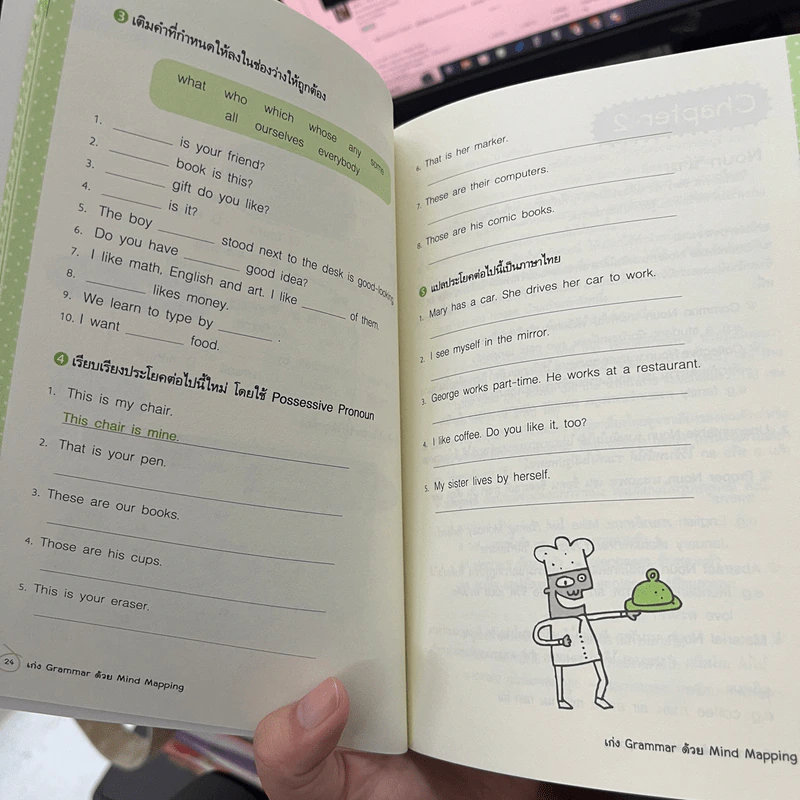 3 เติมคำที่กำหนดให้ลงในช่องว่างให้ถูกต้อง
what who which whose any some
all ourselves everybody
1. ________ is your friend?
2. ________ book is this?
3. ________ gift do you like?
4. ________ is it?
5. The boy ________ stood next to the desk is good-looking
6. Do you have ________ good idea?
7. I like math, English and art. I like ________ of them.
8. ________ likes money.
9. We learn to type by ________ .
10. I want ________ food.
4 เรียบเรียงประโยคต่อไปนี้ใหม่ โดยใช้ Possessive Pronoun
1. This is my chair.
This chair is mine.
2. That is your pen.
3. These are our books.
4. Those are his cups.
5. This is your eraser.
24 เก่ง Grammar ด้วย Mind Mapping
6. That is her marker.
7. These are their computers.
8. Those are his comic books.
5 แปลประโยคต่อไปนี้เป็นภาษาไทย
1. Mary has a car. She drives her car to work.
2. I see myself in the mirror.
3. George works part-time. He works at a restaurant.
4. I like coffee. Do you like it, too?
5. My sister lives by herself.
เก่ง Grammar ด้วย Mind Mapping